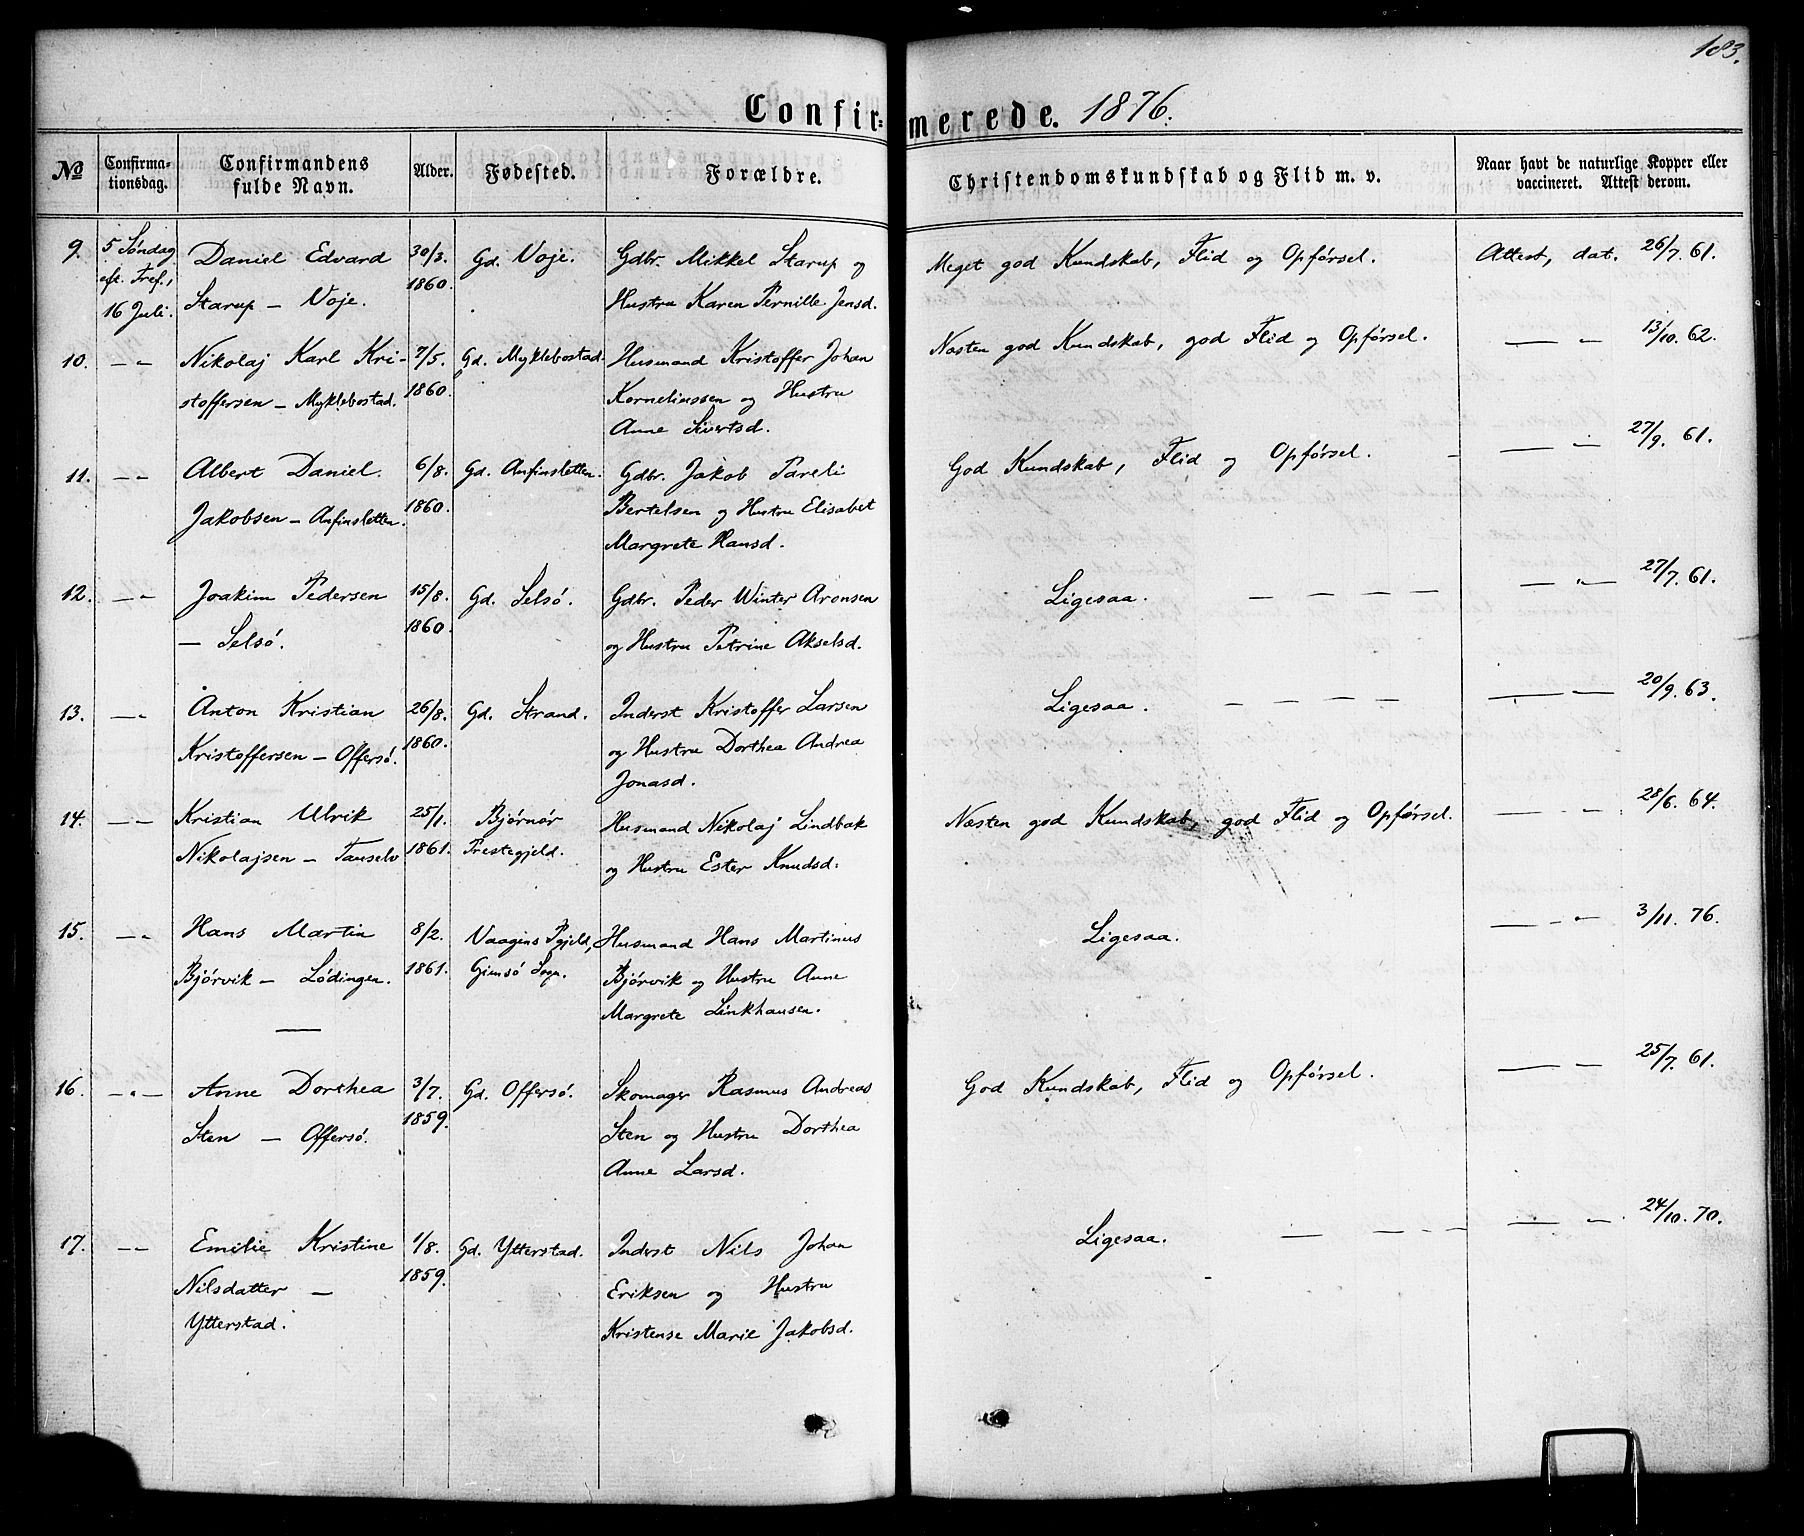 183.
Confirmerede. 1876.
No
Confirmationsdag.
Confirmandens fulde Navn.
Alder.
Fødested.
Forældre.
Christendomskundskab og Flid m. v.
Naar havt de naturlige Kopper eller vaccineret. Attest derom.
9. 5. Søndag Daniel Edvard 30/3. Gd. Voje. Gdbr. Mikkel Starup og Meget god Kundskab, Flid og Opførsel. Attest, dat. 26/7. 61.
eft. Tref., Starup – Voje. 1860. Hustru Karen Pernille Jensd.
16 Juli.
10. – „ Nikolaj Karl Kri- 7/5. Gd. Myklebostad. Husmand Kristoffer Johan Næsten god Kundskab, god Flid og Opførsel. — „ 13/10. 62.
stoffersen – Myklebostad. 1860. Korneliussen og Hustru
Anne Sivertsd.
11. – „ Albert Daniel 6/8. Gd. Anfinsletten. Gdbr. Jakob Pareli God Kundskab, Flid og Opførsel. — „ 27/9. 61.
Jakobsen – Anfinsletten. 1860. Bertelsen og Hustru Elisabet
Margrete Hansd.
12. – „ Joakim Pedersen 15/8. Gd. Selsø. Gdbr. Peder Winter Aronsen Ligesaa. — — — — — „ — 27/7. 61.
– Selsø. 1860. og Hustru Petrine Akselsd.
13. – „ Anton Kristian 26/8. Gd. Strand. Inderst Kristoffer Larsen Ligesaa. — — — — — — 20/9. 63.
Kristoffersen – Offersø. 1860. og Hustru Dorthea Andrea
Jonasd.
14. – „ Kristian Ulrik 25/1. Bjørnør Husmand Nikolaj Lindbak Næsten god Kundskab, god Flid og Opførsel. — „ 28/6. 64.
Nikolajsen – 1861. Prestegjeld. og Hustru Ester Knudsd.
15. – „ Hans Martin 8/2. Vaagens Pgjeld, Husmand Hans Martinus Ligesaa. — „ 3/11. 76.
Bjørvik – Lødingen. 1861. Gimsø Sogn. Bjørvik og Hustru Anne
Margrete Linkhausen.
16. – „ – Anne Dorthea 3/7. Gd. Offersø. Skomager Rasmus Andreas God Kundskab, Flid og Opførsel. — — 25/7. 61.
Sten – Offersø. 1859. Sten og Hustru Dorthea
Anne Larsd.
17. – „ Emilie Kristine 1/8. Gd. Ytterstad. Inderst Nils Johan Ligesaa. — — — — — „ 24/10. 70.
Nilsdatter – 1859. Eriksen og Hustru
Ytterstad. Kristense Marie Jakobsd.